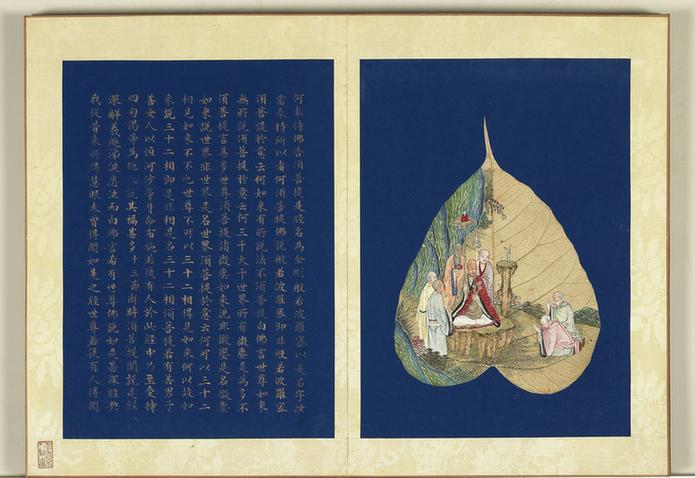 何奉持佛告須菩提是經名為金剛般若波羅蜜以是名字汝
當奉持所以者何須菩提佛說般若波羅蜜即非般若波羅蜜
須菩提於意云何如來有所說法不須菩提白佛言世尊如來
無所說須菩提於意云何三千大千世界所有微塵是為多不
須菩提言甚多世尊須菩提諸微塵如來說非微塵是名微塵
如來說世界非世界是名世界須菩提於意云何可以三十二
相見如來不不也世尊不可以三十二相得見如來何以故如
來說三十二相即是非相是名三十二相須菩提若有善男子
善女人以恒河沙等身命布施若復有人於此經中乃至受持
四句偈等為他人說其福甚多十三爾時須菩提聞說是經
深解義趣涕淚悲泣而白佛言希有世尊佛說如是甚深經典
我從昔來所得慧眼未曾得聞如是之經世尊若復有人得聞